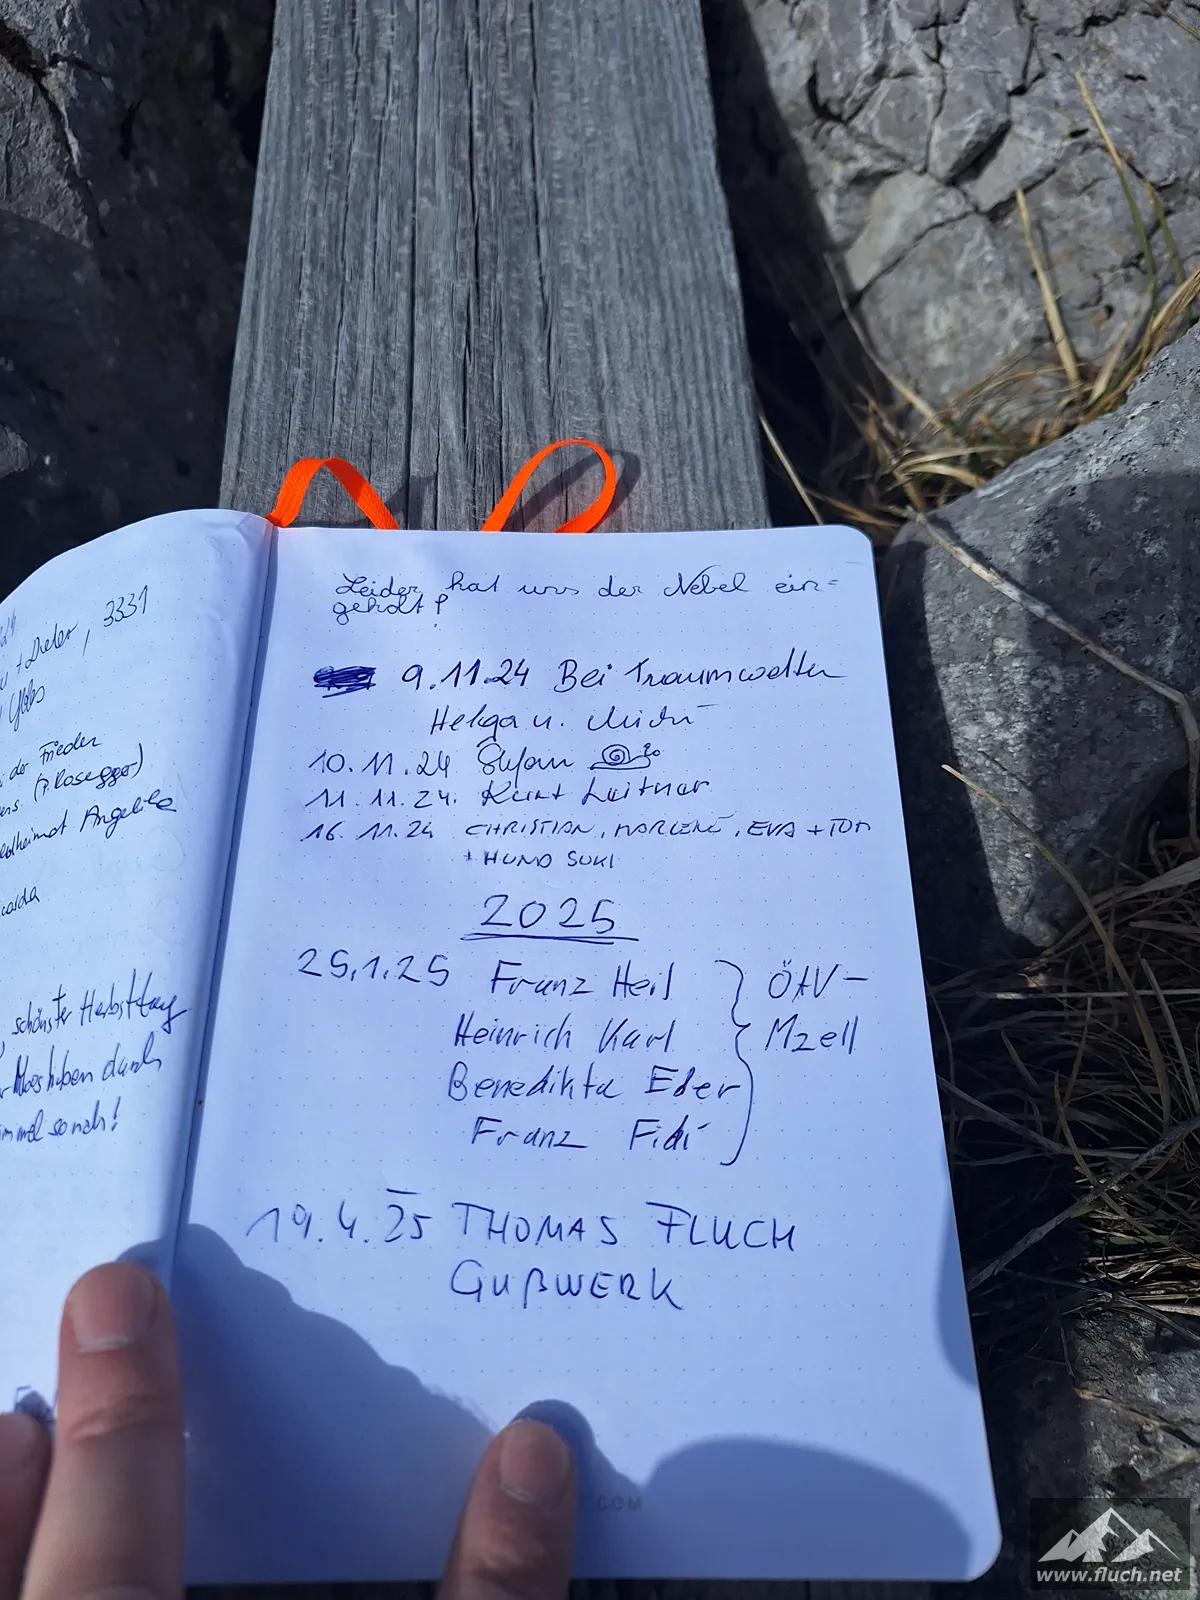 + Dieter, 3331
der Frieden
(P. Rosegger)
Angelika
schönster Herbsttag
durch
Leider hat uns der Nebel ein=
geholt!
9.11.24 Bei Traumwetter
Helga u.
10.11.24 Stefan
11.11.24. Kurt Leitner
16.11.24 CHRISTIAN, MARLENE, EVA + TOM
+ HUND SUKI
2025
25.1.25 Franz Heil ÖAV-
Heinrich Karl Mzell
Benedikta Eder
Franz Fidi
19.4.25 THOMAS FLUCH
GUßWERK
COM
www.fluch.net